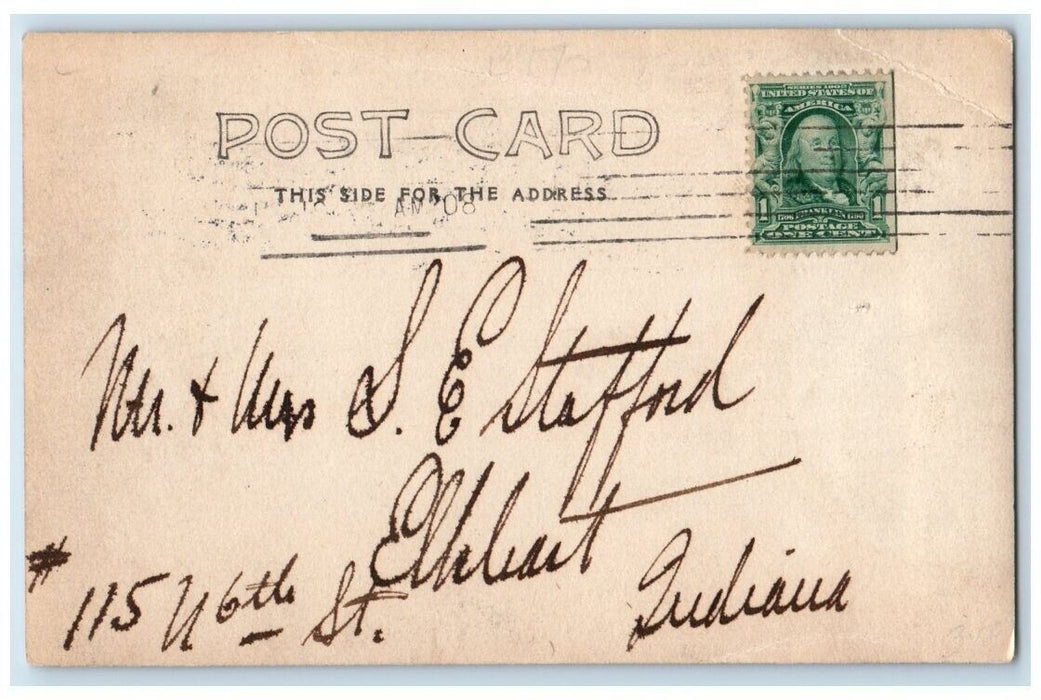 POST CARD
THIS SIDE FOR THE ADDRESS
AM '08
SERIES 1902
UNITED STATES OF
AMERICA
1 1706 FRANKLIN 1790 1
POSTAGE
ONE CENT
Mr. & Mrs S. E Stafford
Elkhart
# 115 N 6th St.
Indiana